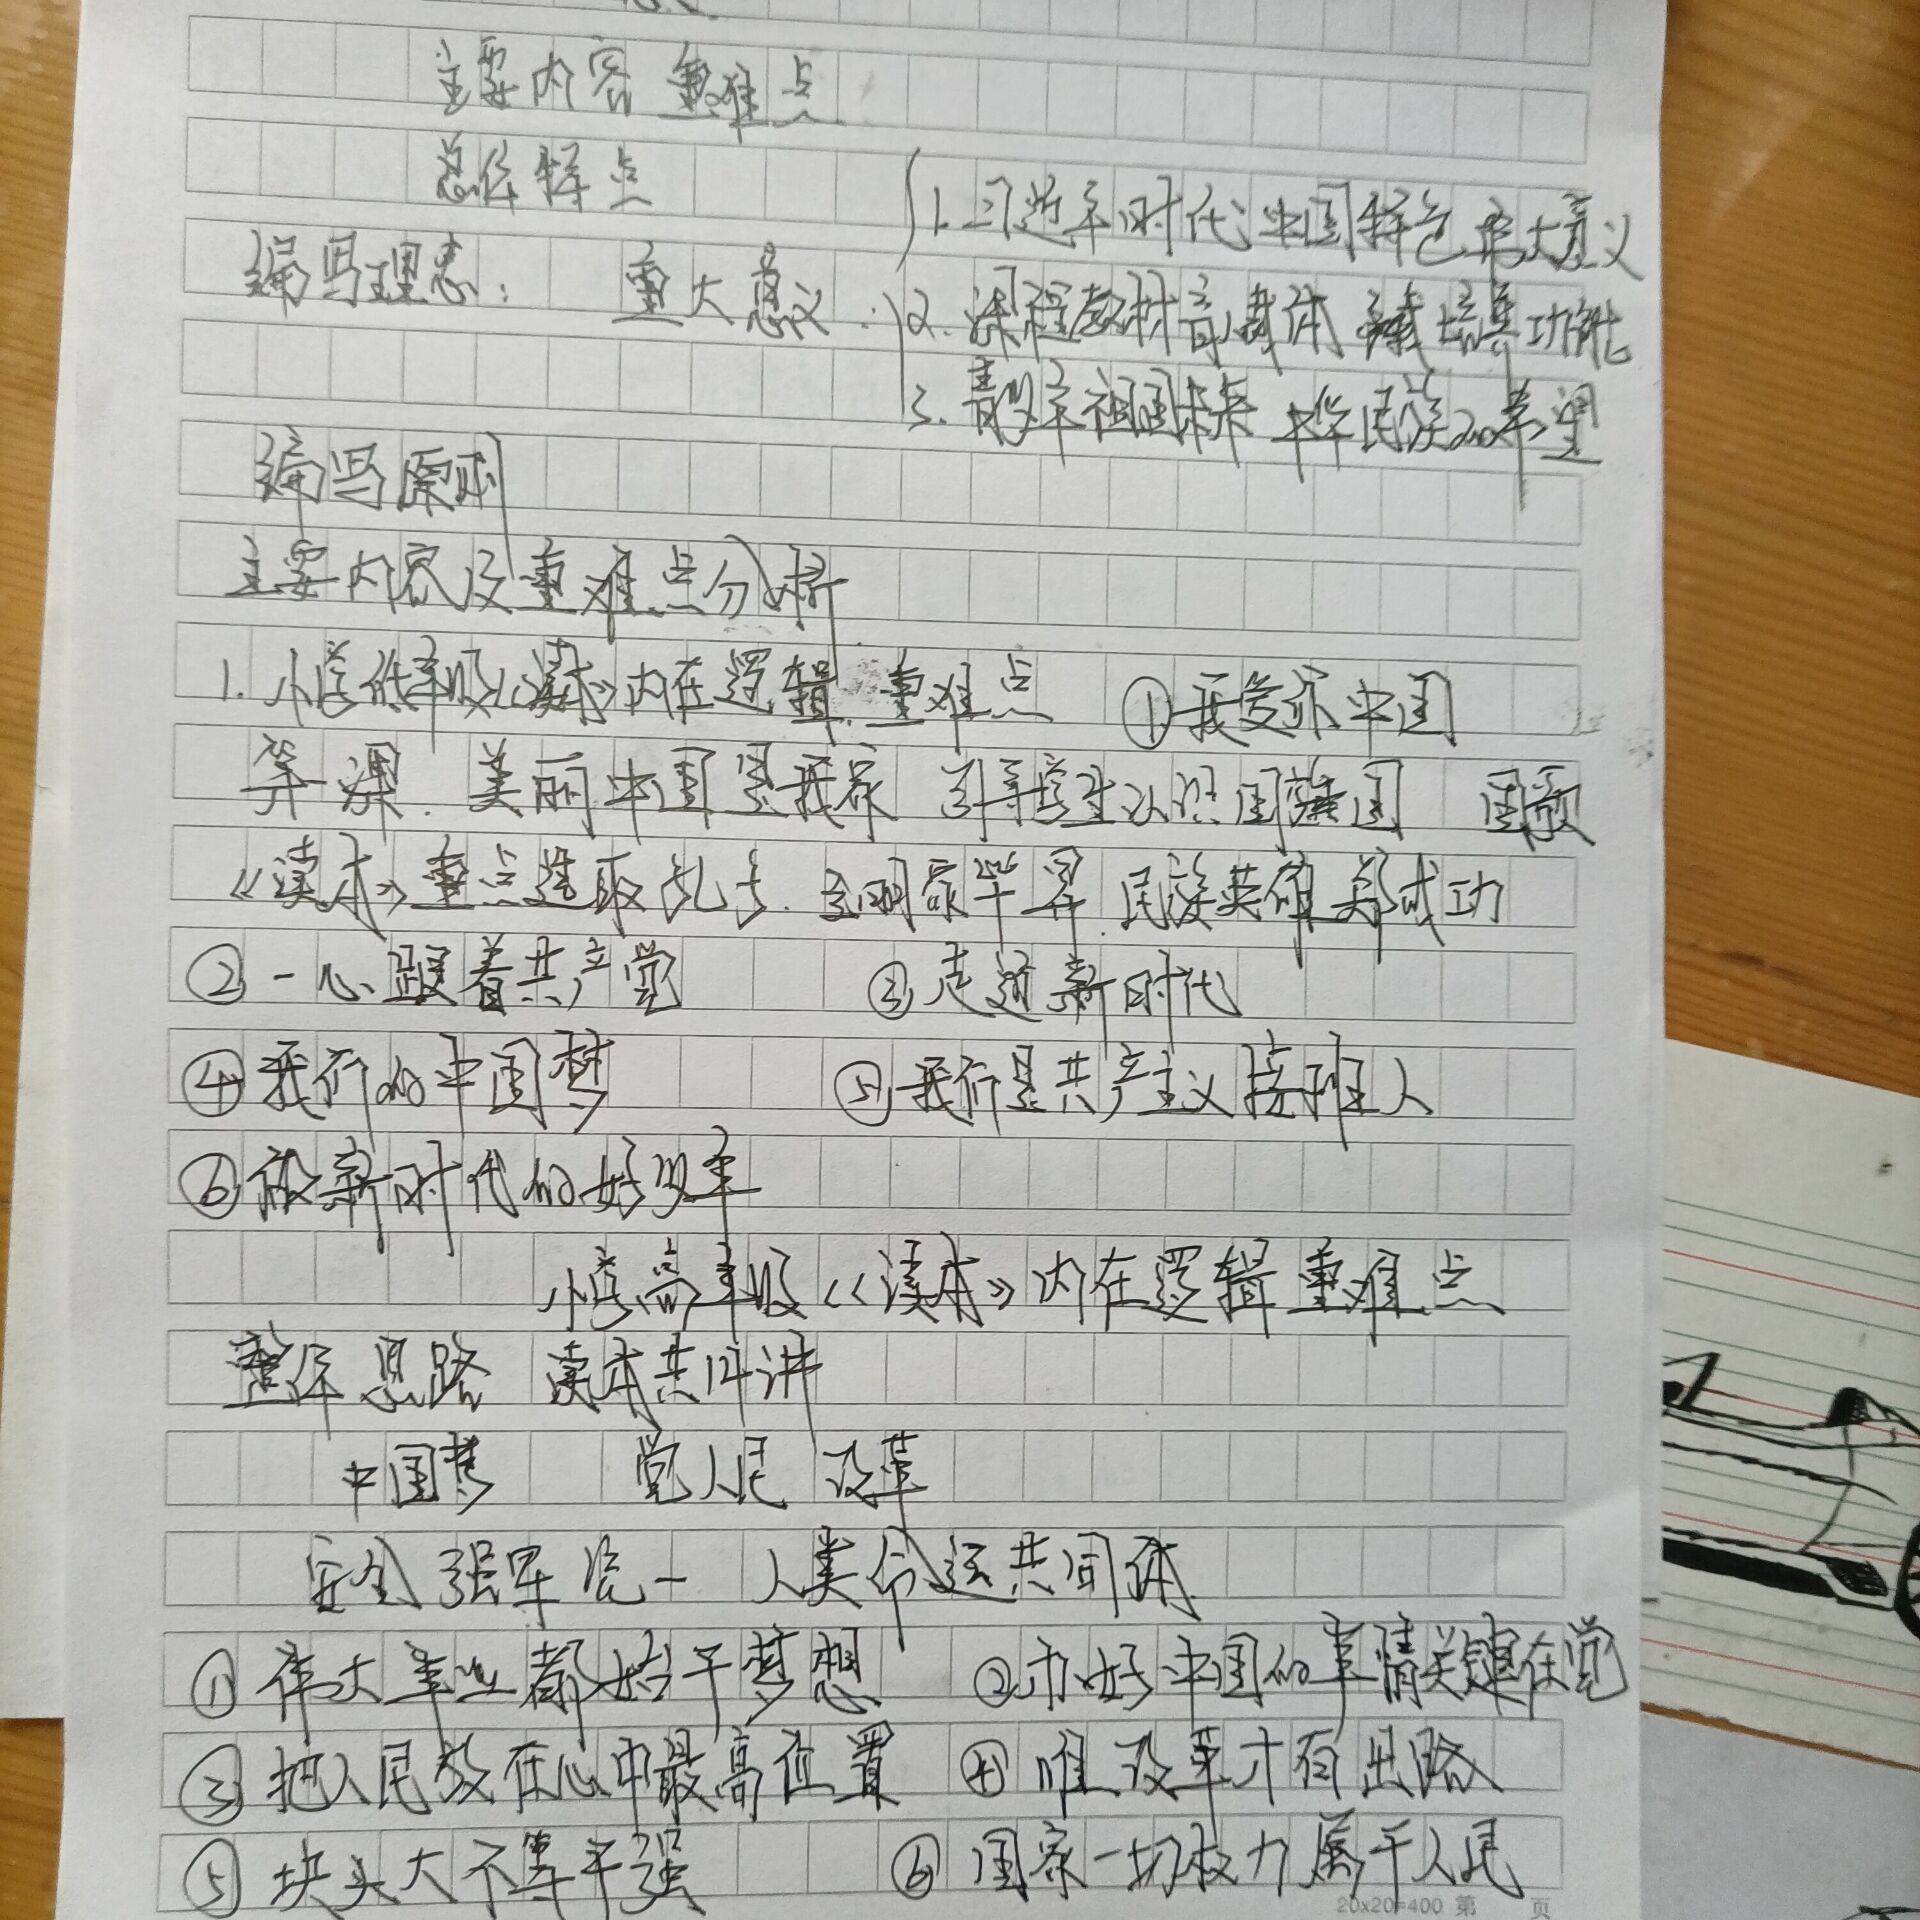 主要内容 重难点
总体特点
1.习近平新时代中国特色 重大意义
编写理念： 重大意义： 2.课程教材育人载体 培养功能
3.青少年祖国未来 中华民族的希望
编写原则
主要内容及重难点分析
1.小学低年级《读本》内在逻辑.重难点 ①我爱你中国
第一课.美丽中国是我家 引导学生认识国旗国 国歌
《读本》重点选取孔子. 民族英雄郑成功
②一心跟着共产党 ③走进新时代
④我们的中国梦 ⑤我们是共产主义接班人
⑥做新时代的好少年
小学高年级《读本》内在逻辑重难点
整体思路 读本共14讲
中国梦 党人民 改革
安全 强军 统一 人类命运共同体
①伟大事业都始于梦想 ②办好中国的事情关键在党
③把人民放在心中最高位置 ④唯改革才有出路
⑤块头大不等于强 ⑥国家一切权力属于人民
20x20=400 第 页